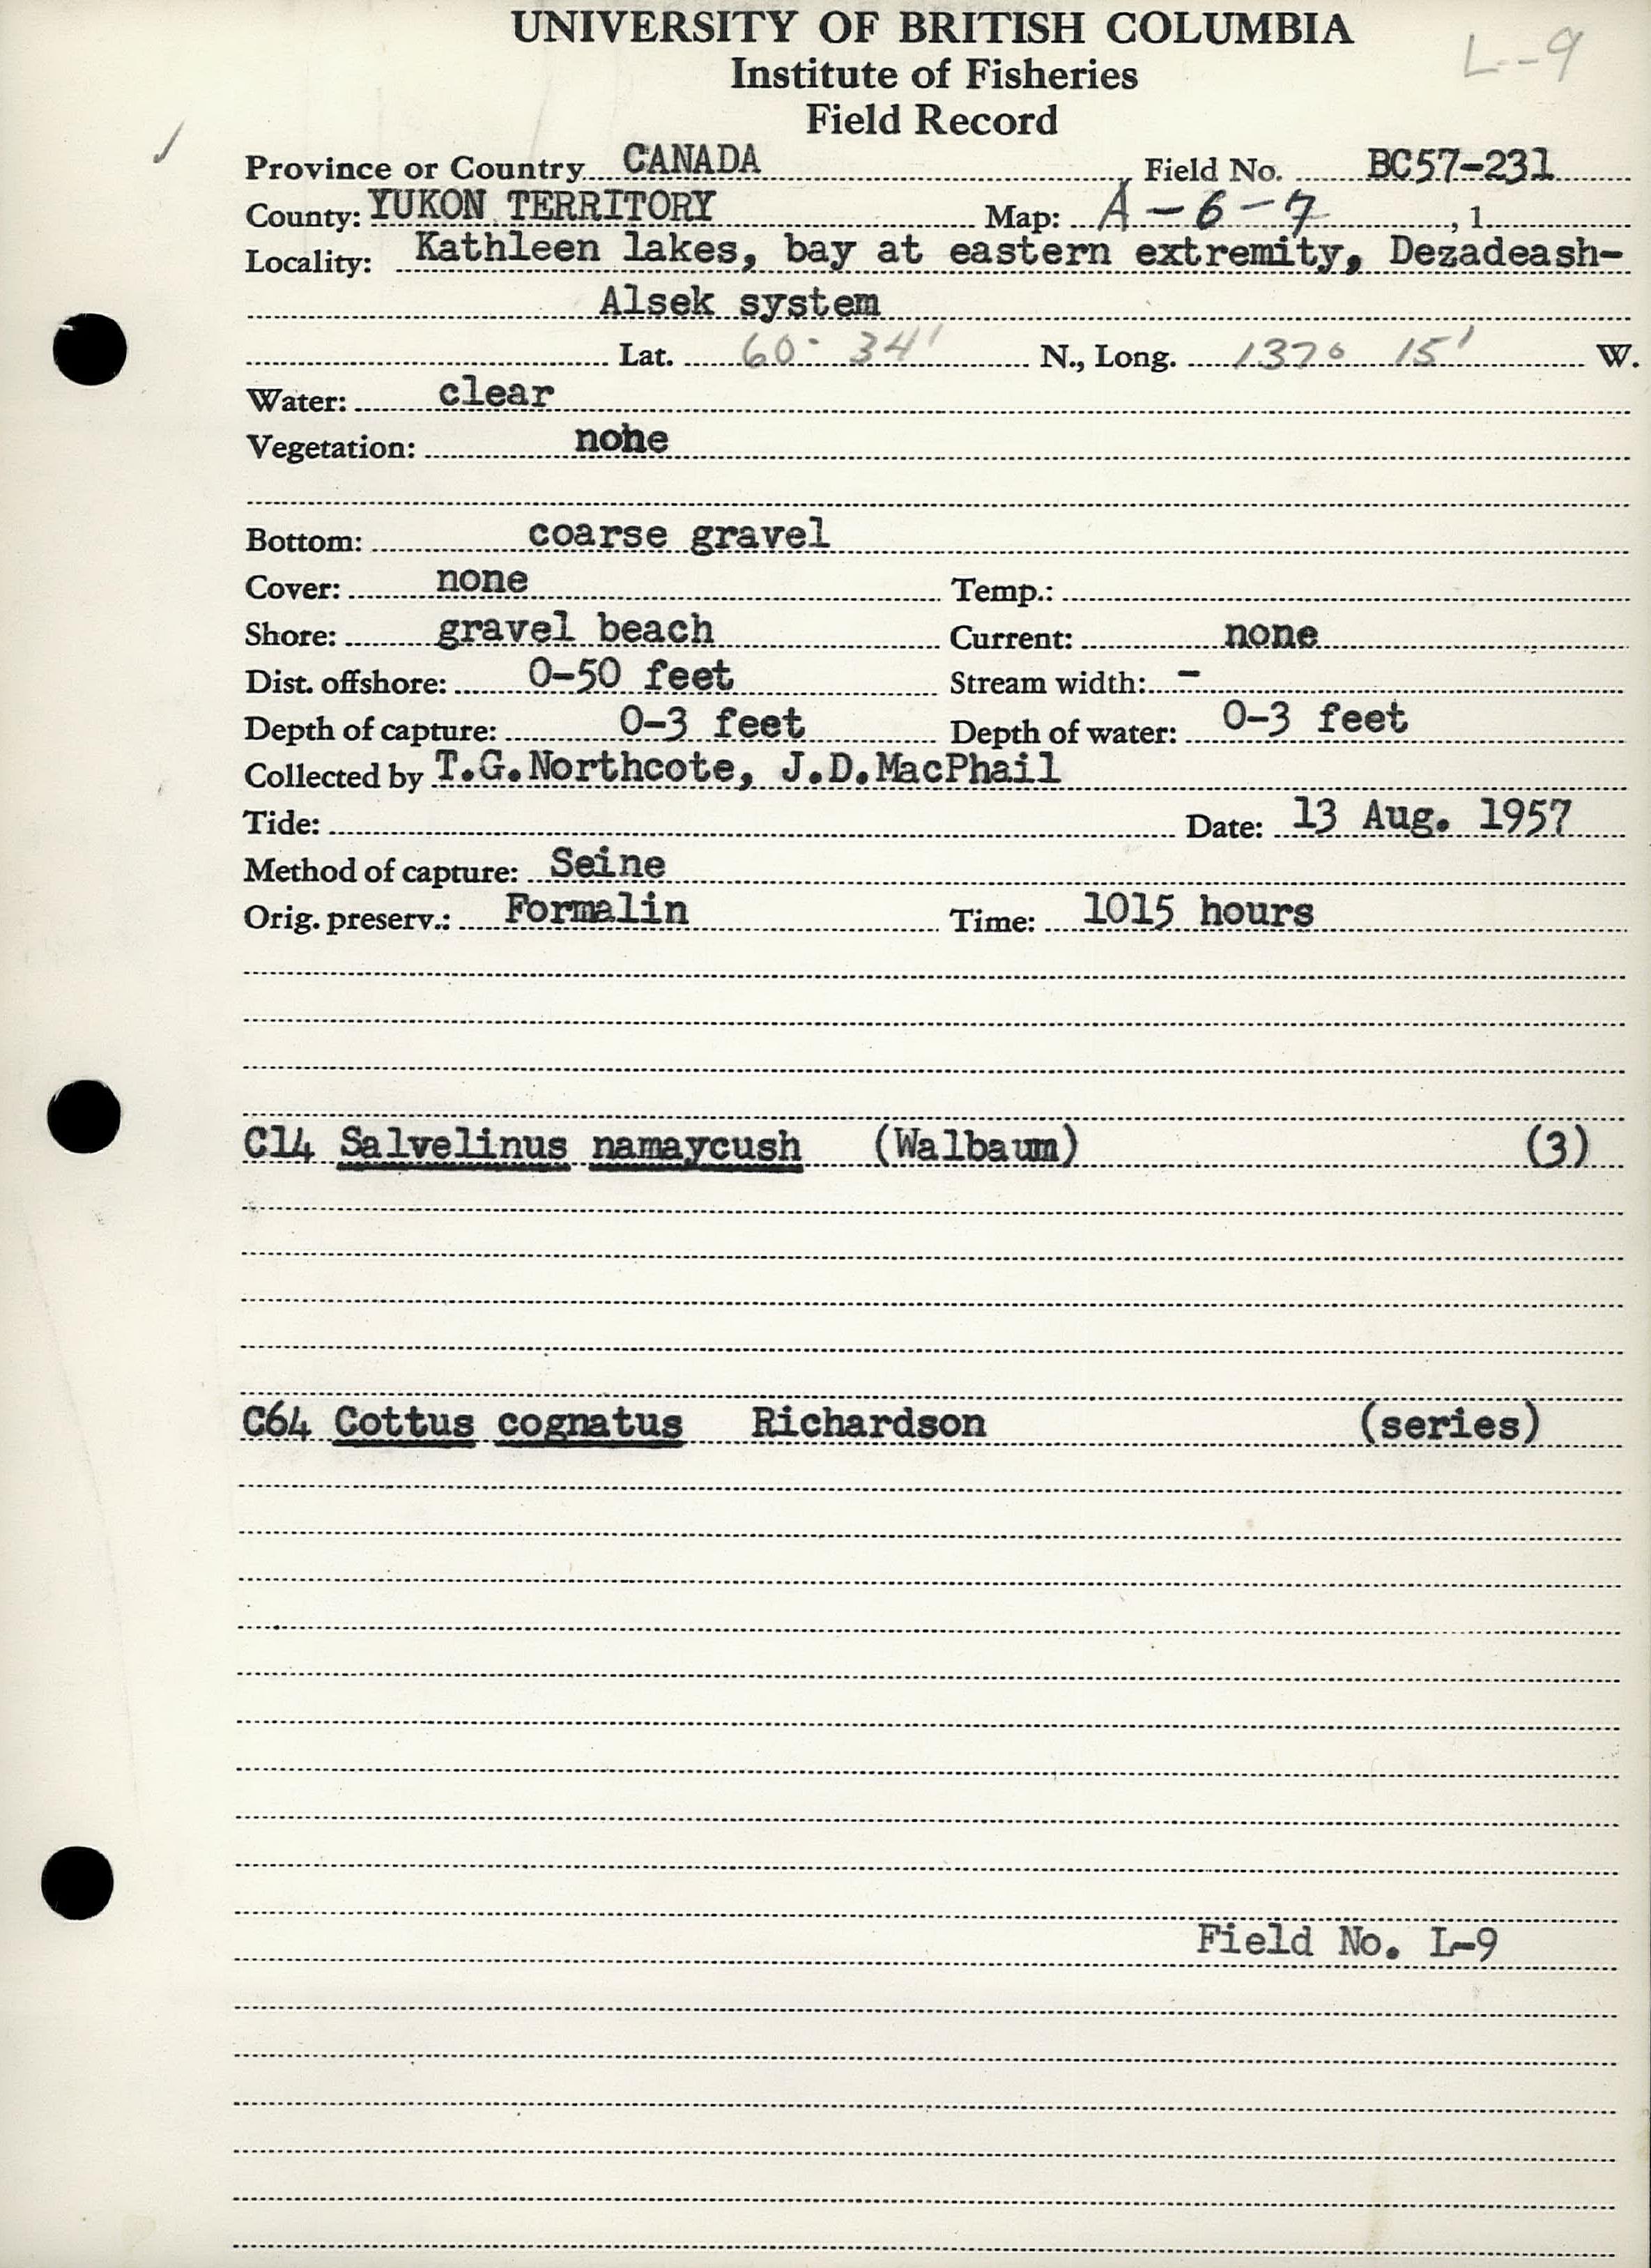 UNIVERSITY OF BRITISH COLUMBIA
L--9
Institute of Fisheries
Field Record
Province or Country CANADA Field No. BC57-231
County: YUKON TERRITORY Map: A-6-7, 1
Locality: Kathleen lakes, bay at eastern extremity, Dezadeash-
Alsek system
Lat. 60° 34' N., Long. 137° 15' W.
Water: clear
Vegetation: none
Bottom: coarse gravel
Cover: none Temp.:
Shore: gravel beach Current: none
Dist. offshore: 0-50 feet Stream width: -
Depth of capture: 0-3 feet Depth of water: 0-3 feet
Collected by T.G.Northcote, J.D.MacPhail
Tide: Date: 13 Aug. 1957
Method of capture: Seine
Orig. preserv.: Formalin Time: 1015 hours
C14 Salvelinus namaycush (Walbaum) (3)
C64 Cottus cognatus Richardson (series)
Field No. L-9